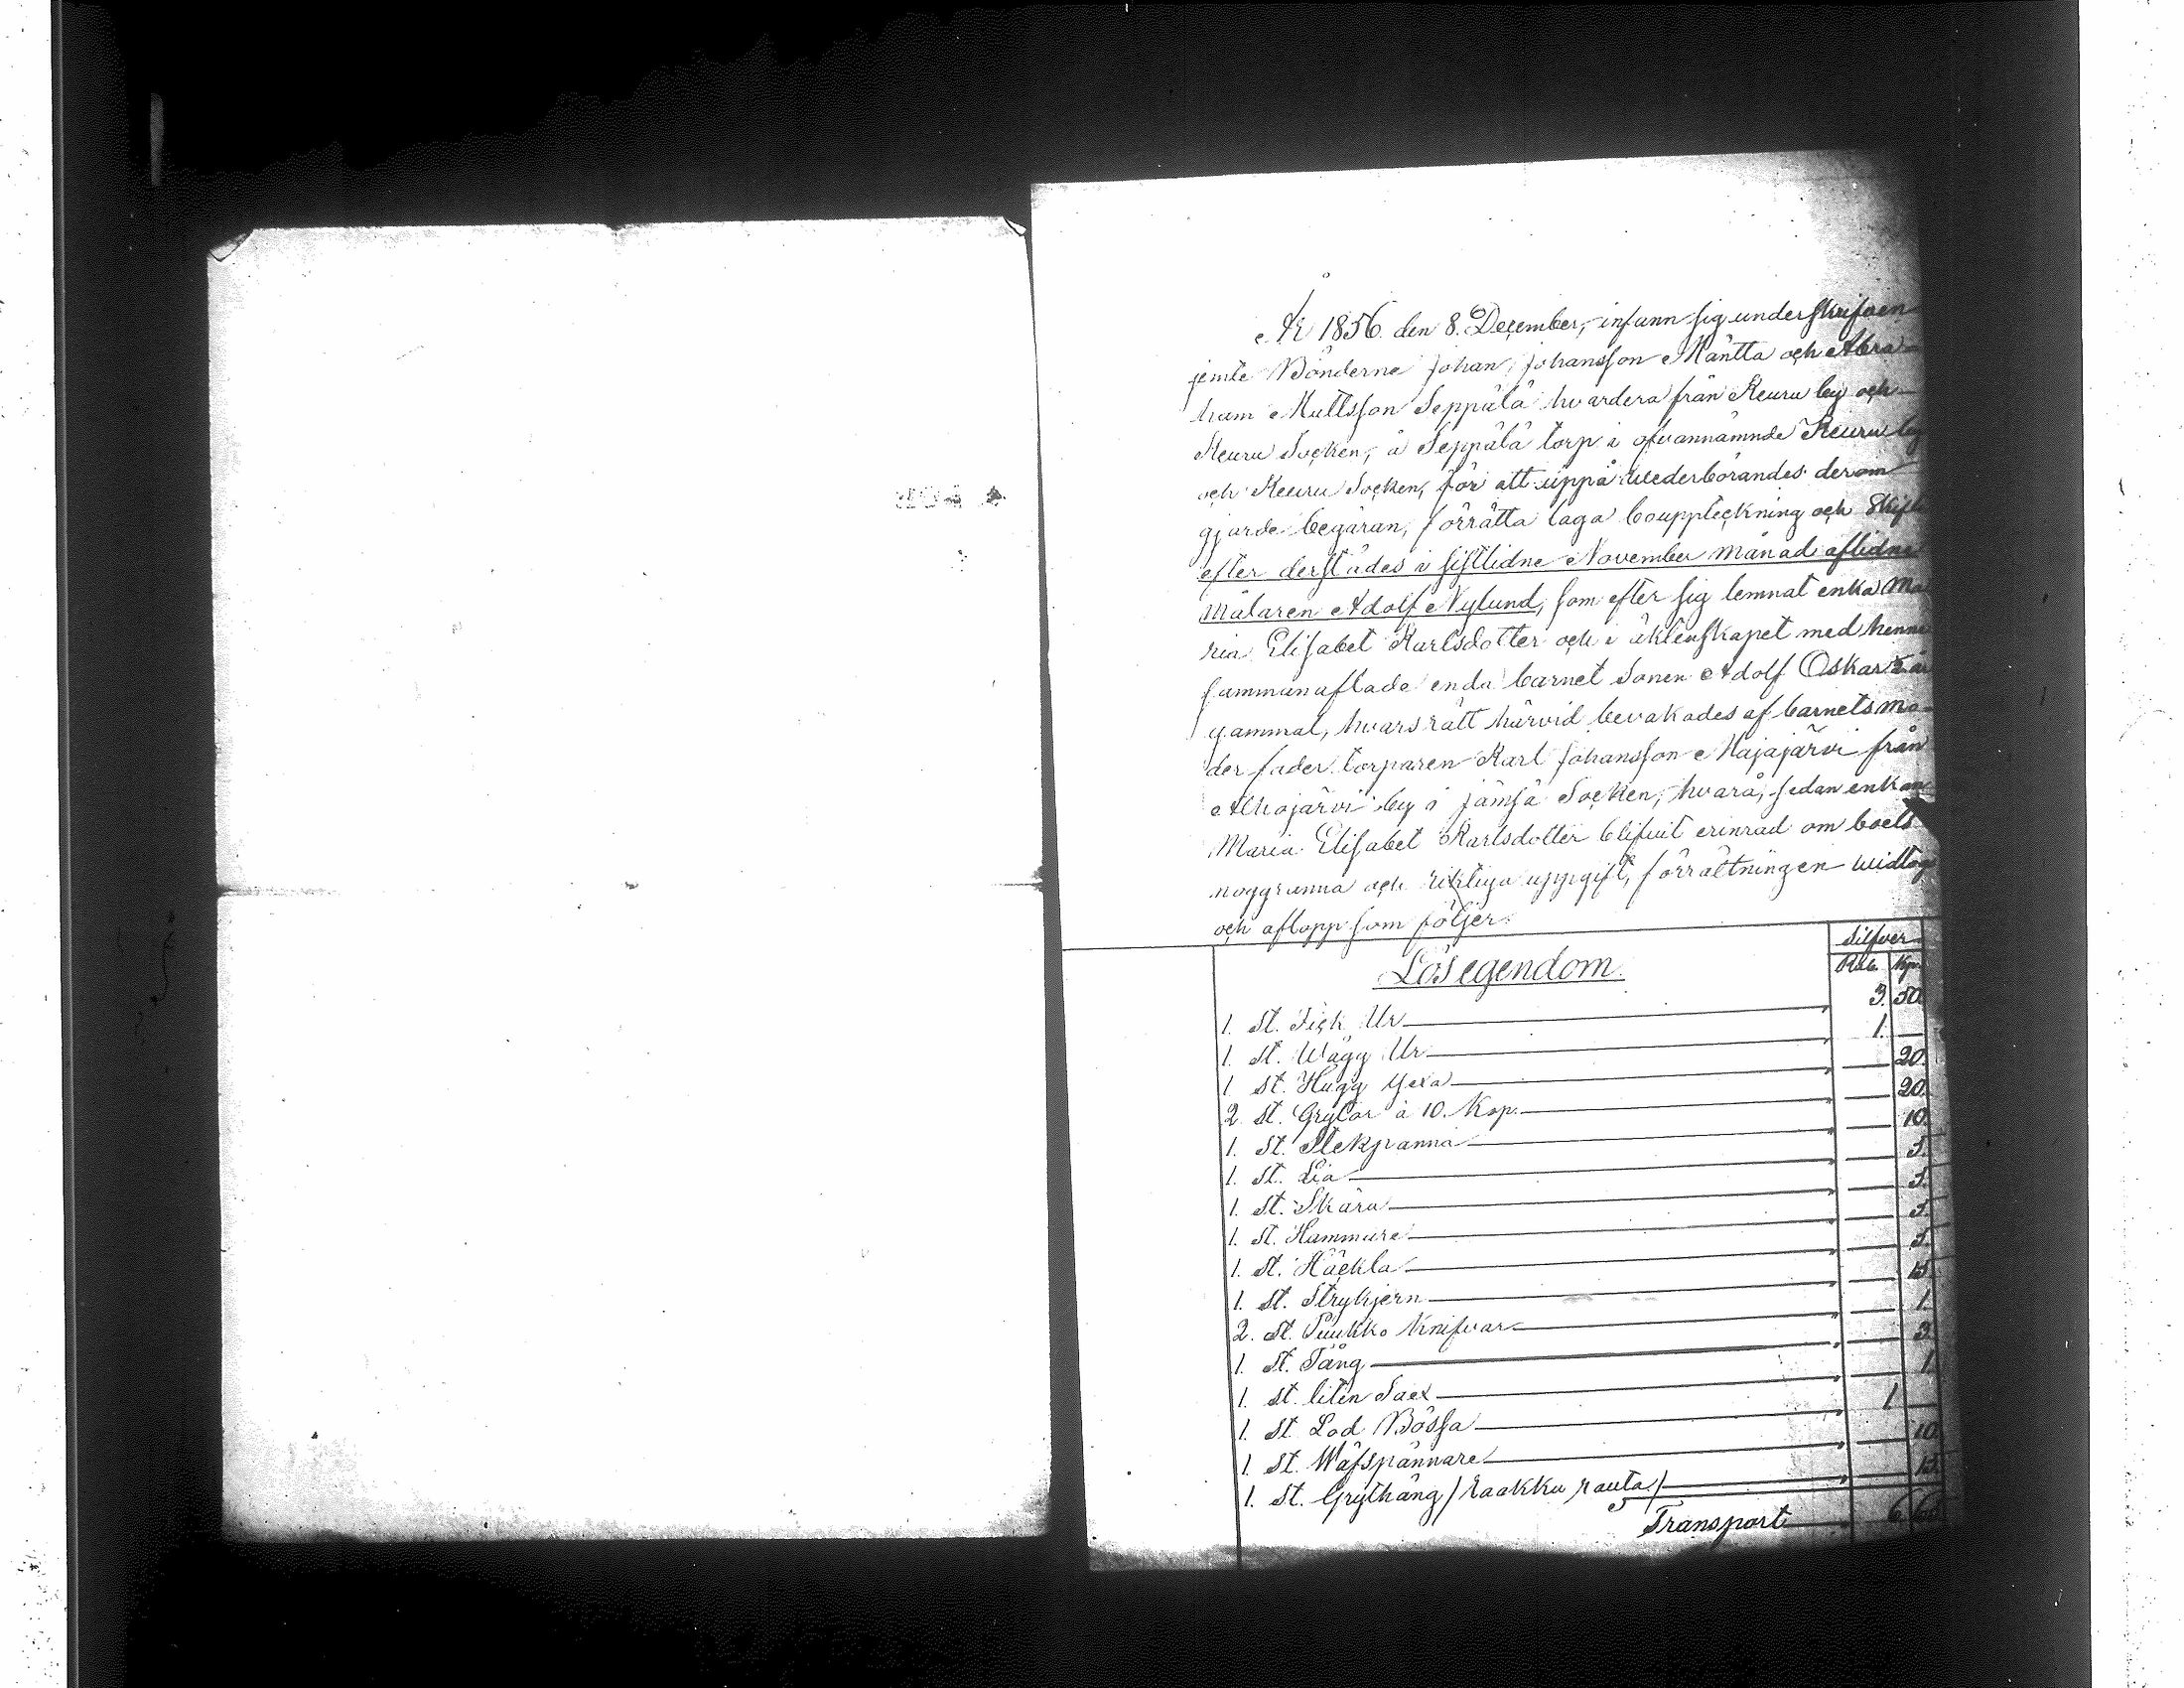 År 1856 den 8. December, infann sig underskrifven
jemte Bönderne Johan Johansson Mäntta och Abra-
ham Mattsson Seppälä hvardera från Keuru by och
Keuru Socken, å Seppälä torp i ofvannämnde Keuru by
och Keuru Socken, för att uppå wederbörandes derom
gjorde begäran, förrätta laga bouppteckning och Skifte
efter derstädes i sistlidne November månad aflidne
Målaren Adolf Nylund, som efter sig lemnat enka Ma
ria Elisabet Karlsdotter och i äktenskapet med henne
sammanaflade enda barnet Sonen Adolf Oskar år
gammal, hvars rätt härvid bevakades af barnets mo-
der fader torparen Karl Johansson Hajajärvi från
Alhojärvi by i Jämsä Socken, hvarå, sedan enkan
Maria Elisabet Karlsdotter blifvit erinrad om boets
noggranna och riktiga uppgift, förrättningen widtog
och aflopp som följer:
Silfver
Lösegendom. Rub. Kp.
1. St. Fick Ur 3. 50.
1. St. Wägg Ur 1. —
1. St. Hugg Yexa — 20.
2 St. Grytor à 10. Kop. — 20.
1. St. Stekpanna — 10.
1. St. Lia — 5.
1. St. Skära — 5.
1. St. Hammare — 5.
1. St. Häckla — 5.
1. St. Strykjern — 15
2. St. Puukko Knifvar — 1.
1. St. Tång — 3.
1. St. liten Saex — 1.
1. St. Lod Bössa 1 —
1. St. Wäfspännare — 10.
1. St. Grythäng / raakku rauta / — 15.
Transport 6. 65